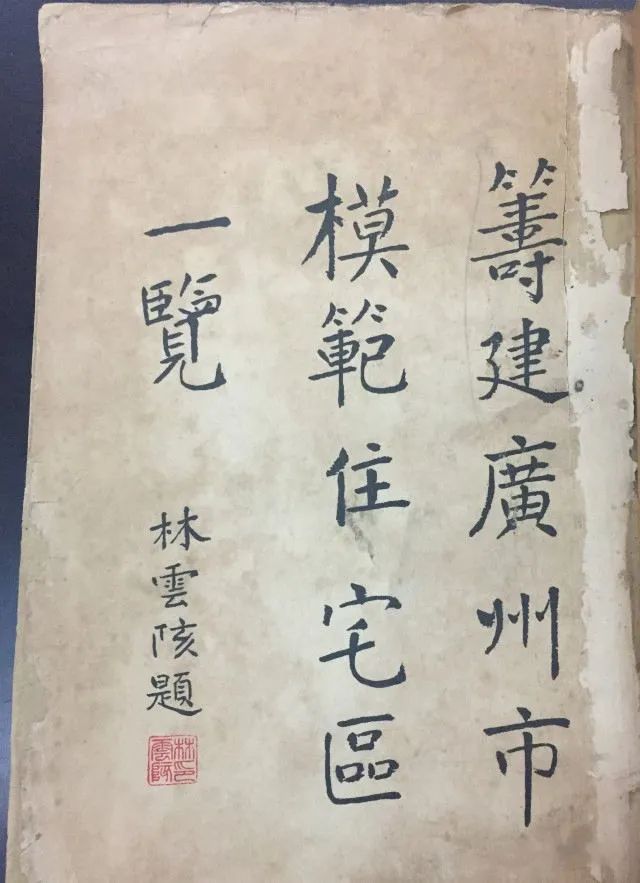 籌建廣州市
模範住宅區
一覽
林雲陔題